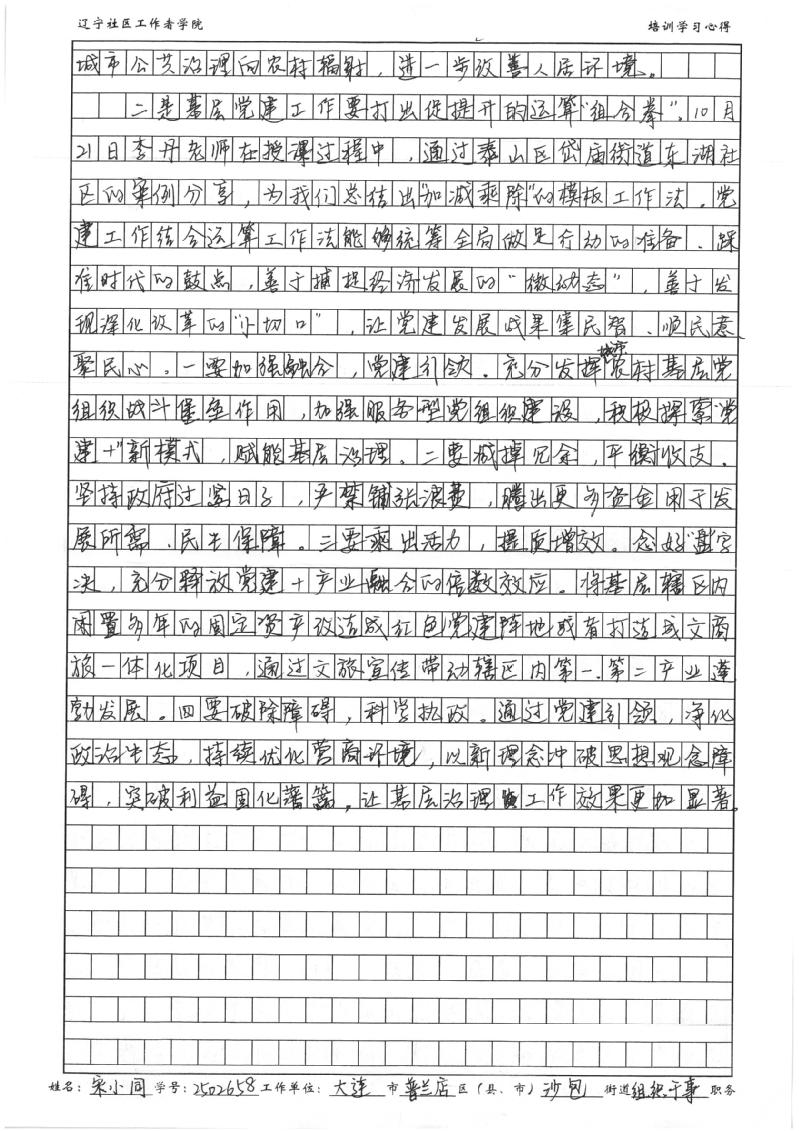 辽宁社区工作者学院 培训学习心得
城市公共治理向农村辐射，进一步改善人居环境。
二是基层党建工作要打出促提升的运算“组合拳”。10月
21日李丹老师在授课过程中，通过泰山区岱庙街道东湖社
区的案例分享，为我们总结出“加减乘除”的模板工作法。党
建工作结合运算工作法能够统筹全局做足行动的准备、踩
准时代的鼓点，善于捕捉经济发展的“微动态”，善于发
现深化改革的“小切口”，让党建发展成果集民智、顺民意
聚民心。一要加强融合，党建引领。充分发挥城市农村基层党
组织战斗堡垒作用，加强服务型党组织建设，积极探索“党
建+”新模式，赋能基层治理。二要减掉冗余，平衡收支。
坚持政府过紧日子，严禁铺张浪费，腾出更多资金用于发
展所需、民生保障。三要乘出活力，提质增效。念好“融”字
决，充分释放党建+产业融合的倍数效应。将基层辖区内
闲置多年的固定资产改造成红色党建阵地或者打造成文商
旅一体化项目，通过文旅宣传带动辖区内第一、第二产业蓬
勃发展。四要破除障碍，科学执政。通过党建引领，净化
政治生态，持续优化营商环境，以新理念冲破思想观念障
碍，突破利益固化藩篱。让基层治理工作效果更加显著。
姓名：宋小同 学号：2502658 工作单位：大连 市 普兰店 区（县、市）沙包 街道 组织干事 职务